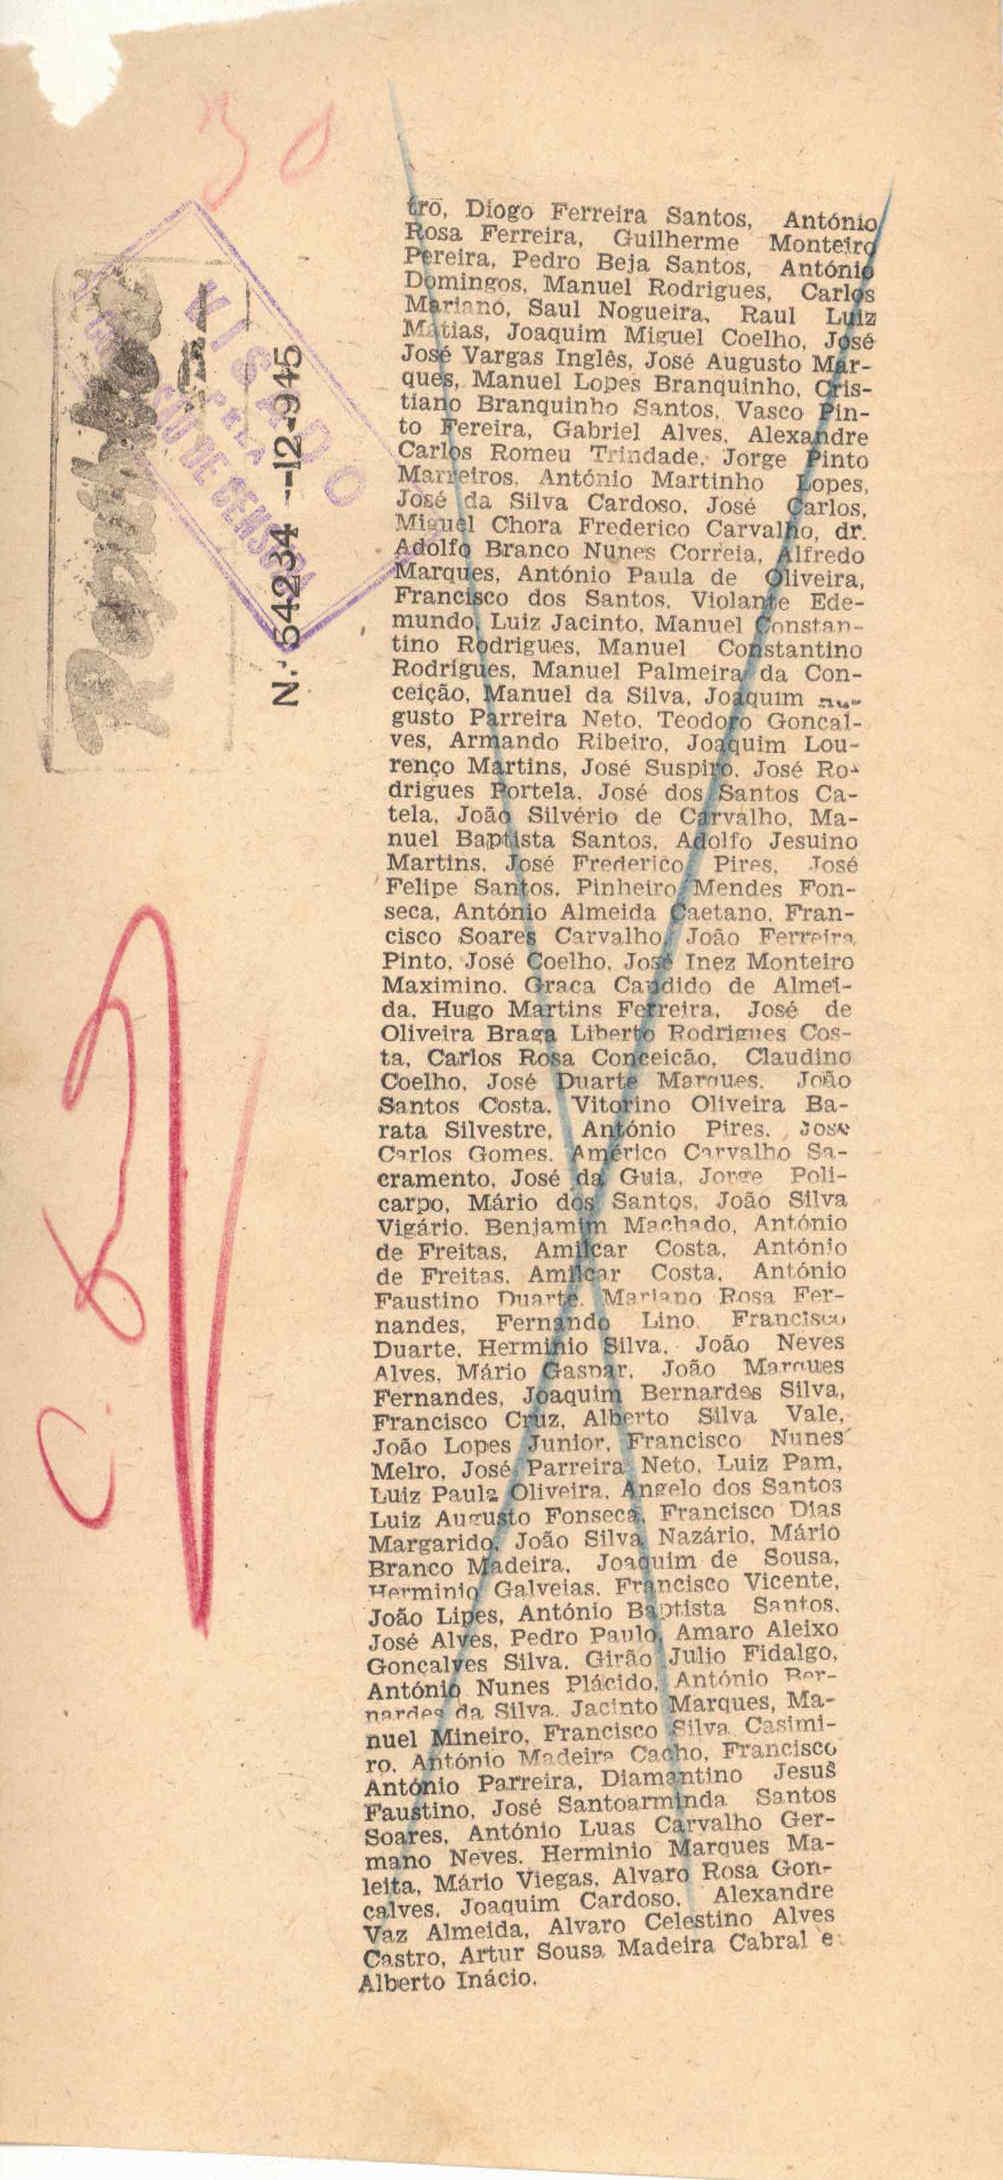 30
VISADO
PELA
COMISSÃO DE CENSURA
República
N.º 54234 --12-945
tro, Diogo Ferreira Santos, António
Rosa Ferreira, Guilherme Monteiro
Pereira, Pedro Beja Santos, António
Domingos, Manuel Rodrigues, Carlos
Mariano, Saul Nogueira, Raul Luiz
Matias, Joaquim Miguel Coelho, José
José Vargas Inglês, José Augusto Mar-
ques, Manuel Lopes Branquinho, Cris-
tiano Branquinho Santos, Vasco Pin-
to Fereira, Gabriel Alves, Alexandre
Carlos Romeu Trindade, Jorge Pinto
Marreiros, António Martinho Lopes,
José da Silva Cardoso, José Carlos,
Miguel Chora Frederico Carvalho, dr.
Adolfo Branco Nunes Correia, Alfredo
Marques, António Paula de Oliveira,
Francisco dos Santos, Violante Ede-
mundo, Luiz Jacinto, Manuel Constan-
tino Rodrigues, Manuel Constantino
Rodrigues, Manuel Palmeira da Con-
ceição, Manuel da Silva, Joaquim Au-
gusto Parreira Neto, Teodoro Goncal-
ves, Armando Ribeiro, Joaquim Lou-
renço Martins, José Suspiro, José Ro-
drigues Portela, José dos Santos Ca-
tela, João Silvério de Carvalho, Ma-
nuel Baptista Santos, Adolfo Jesuino
Martins, José Frederico Pires, José
Felipe Santos, Pinheiro Mendes Fon-
seca, António Almeida Caetano, Fran-
cisco Soares Carvalho, João Ferreira
Pinto, José Coelho, José Inez Monteiro
Maximino, Graca Candido de Almei-
da, Hugo Martins Ferreira, José de
Oliveira Braga Liberto Rodrigues Cos-
ta, Carlos Rosa Conceicão, Claudino
Coelho, José Duarte Marques, João
Santos Costa, Vitorino Oliveira Ba-
rata Silvestre, António Pires, José
Carlos Gomes, Américo Carvalho Sa-
cramento, José da Guia, Jorge Poli-
carpo, Mário dos Santos, João Silva
Vigário, Benjamim Machado, António
de Freitas, Amilcar Costa, António
de Freitas, Amilcar Costa, António
Faustino Duarte, Mariano Rosa Fer-
nandes, Fernando Lino, Francisco
Duarte, Herminio Silva, João Neves
Alves, Mário Gaspar, João Marques
Fernandes, Joaquim Bernardes Silva,
Francisco Cruz, Alberto Silva Vale,
João Lopes Junior, Francisco Nunes
Melro, José Parreira Neto, Luiz Pam,
Luiz Paula Oliveira, Angelo dos Santos
Luiz Augusto Fonseca, Francisco Dias
Margarido, João Silva Nazário, Mário
Branco Madeira, Joaquim de Sousa,
Herminio Galveias, Francisco Vicente,
João Lipes, António Baptista Santos,
José Alves, Pedro Paulo, Amaro Aleixo
Goncalves Silva, Girão Julio Fidalgo,
António Nunes Plácido, António Ber-
nardes da Silva, Jacinto Marques, Ma-
nuel Mineiro, Francisco Silva Casimi-
ro, António Madeira Cacho, Francisco
António Parreira, Diamantino Jesus
Faustino, José Santoarminda Santos
Soares, António Luas Carvalho Ger-
mano Neves, Herminio Marques Ma-
leita, Mário Viegas, Alvaro Rosa Gon-
calves, Joaquim Cardoso, Alexandre
Vaz Almeida, Alvaro Celestino Alves
Castro, Artur Sousa Madeira Cabral e
Alberto Inácio.